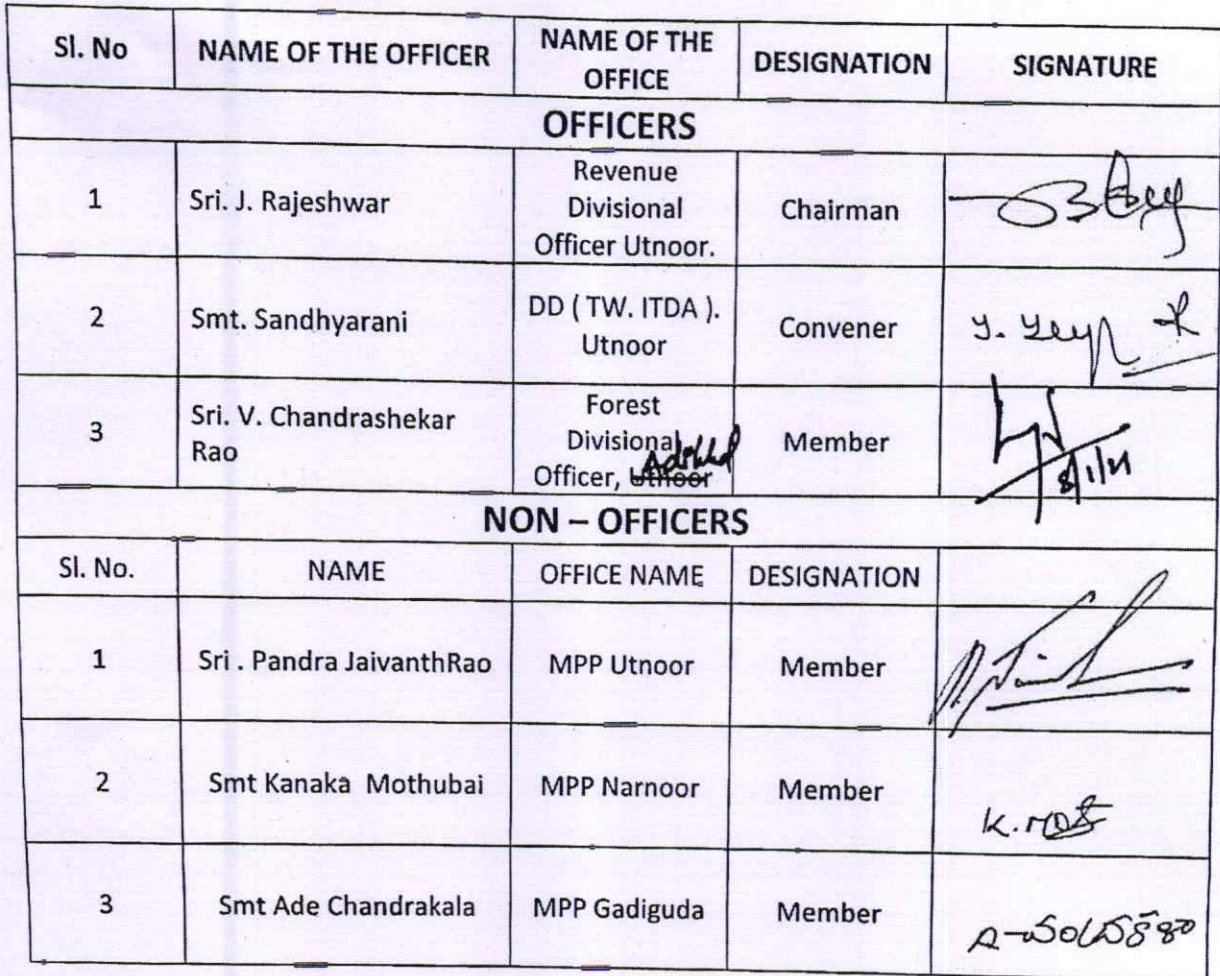 Sl. No NAME OF THE OFFICER NAME OF THE OFFICE DESIGNATION SIGNATURE
OFFICERS
1 Sri. J. Rajeshwar Revenue Divisional Officer Utnoor. Chairman
2 Smt. Sandhyarani DD ( TW. ITDA ). Utnoor Convener
3 Sri. V. Chandrashekar Rao Forest Divisional Officer, Utnoor Member
8/1/21
NON – OFFICERS
Sl. No. NAME OFFICE NAME DESIGNATION
1 Sri . Pandra JaivanthRao MPP Utnoor Member
2 Smt Kanaka Mothubai MPP Narnoor Member K.
3 Smt Ade Chandrakala MPP Gadiguda Member A-చంద్రకళా